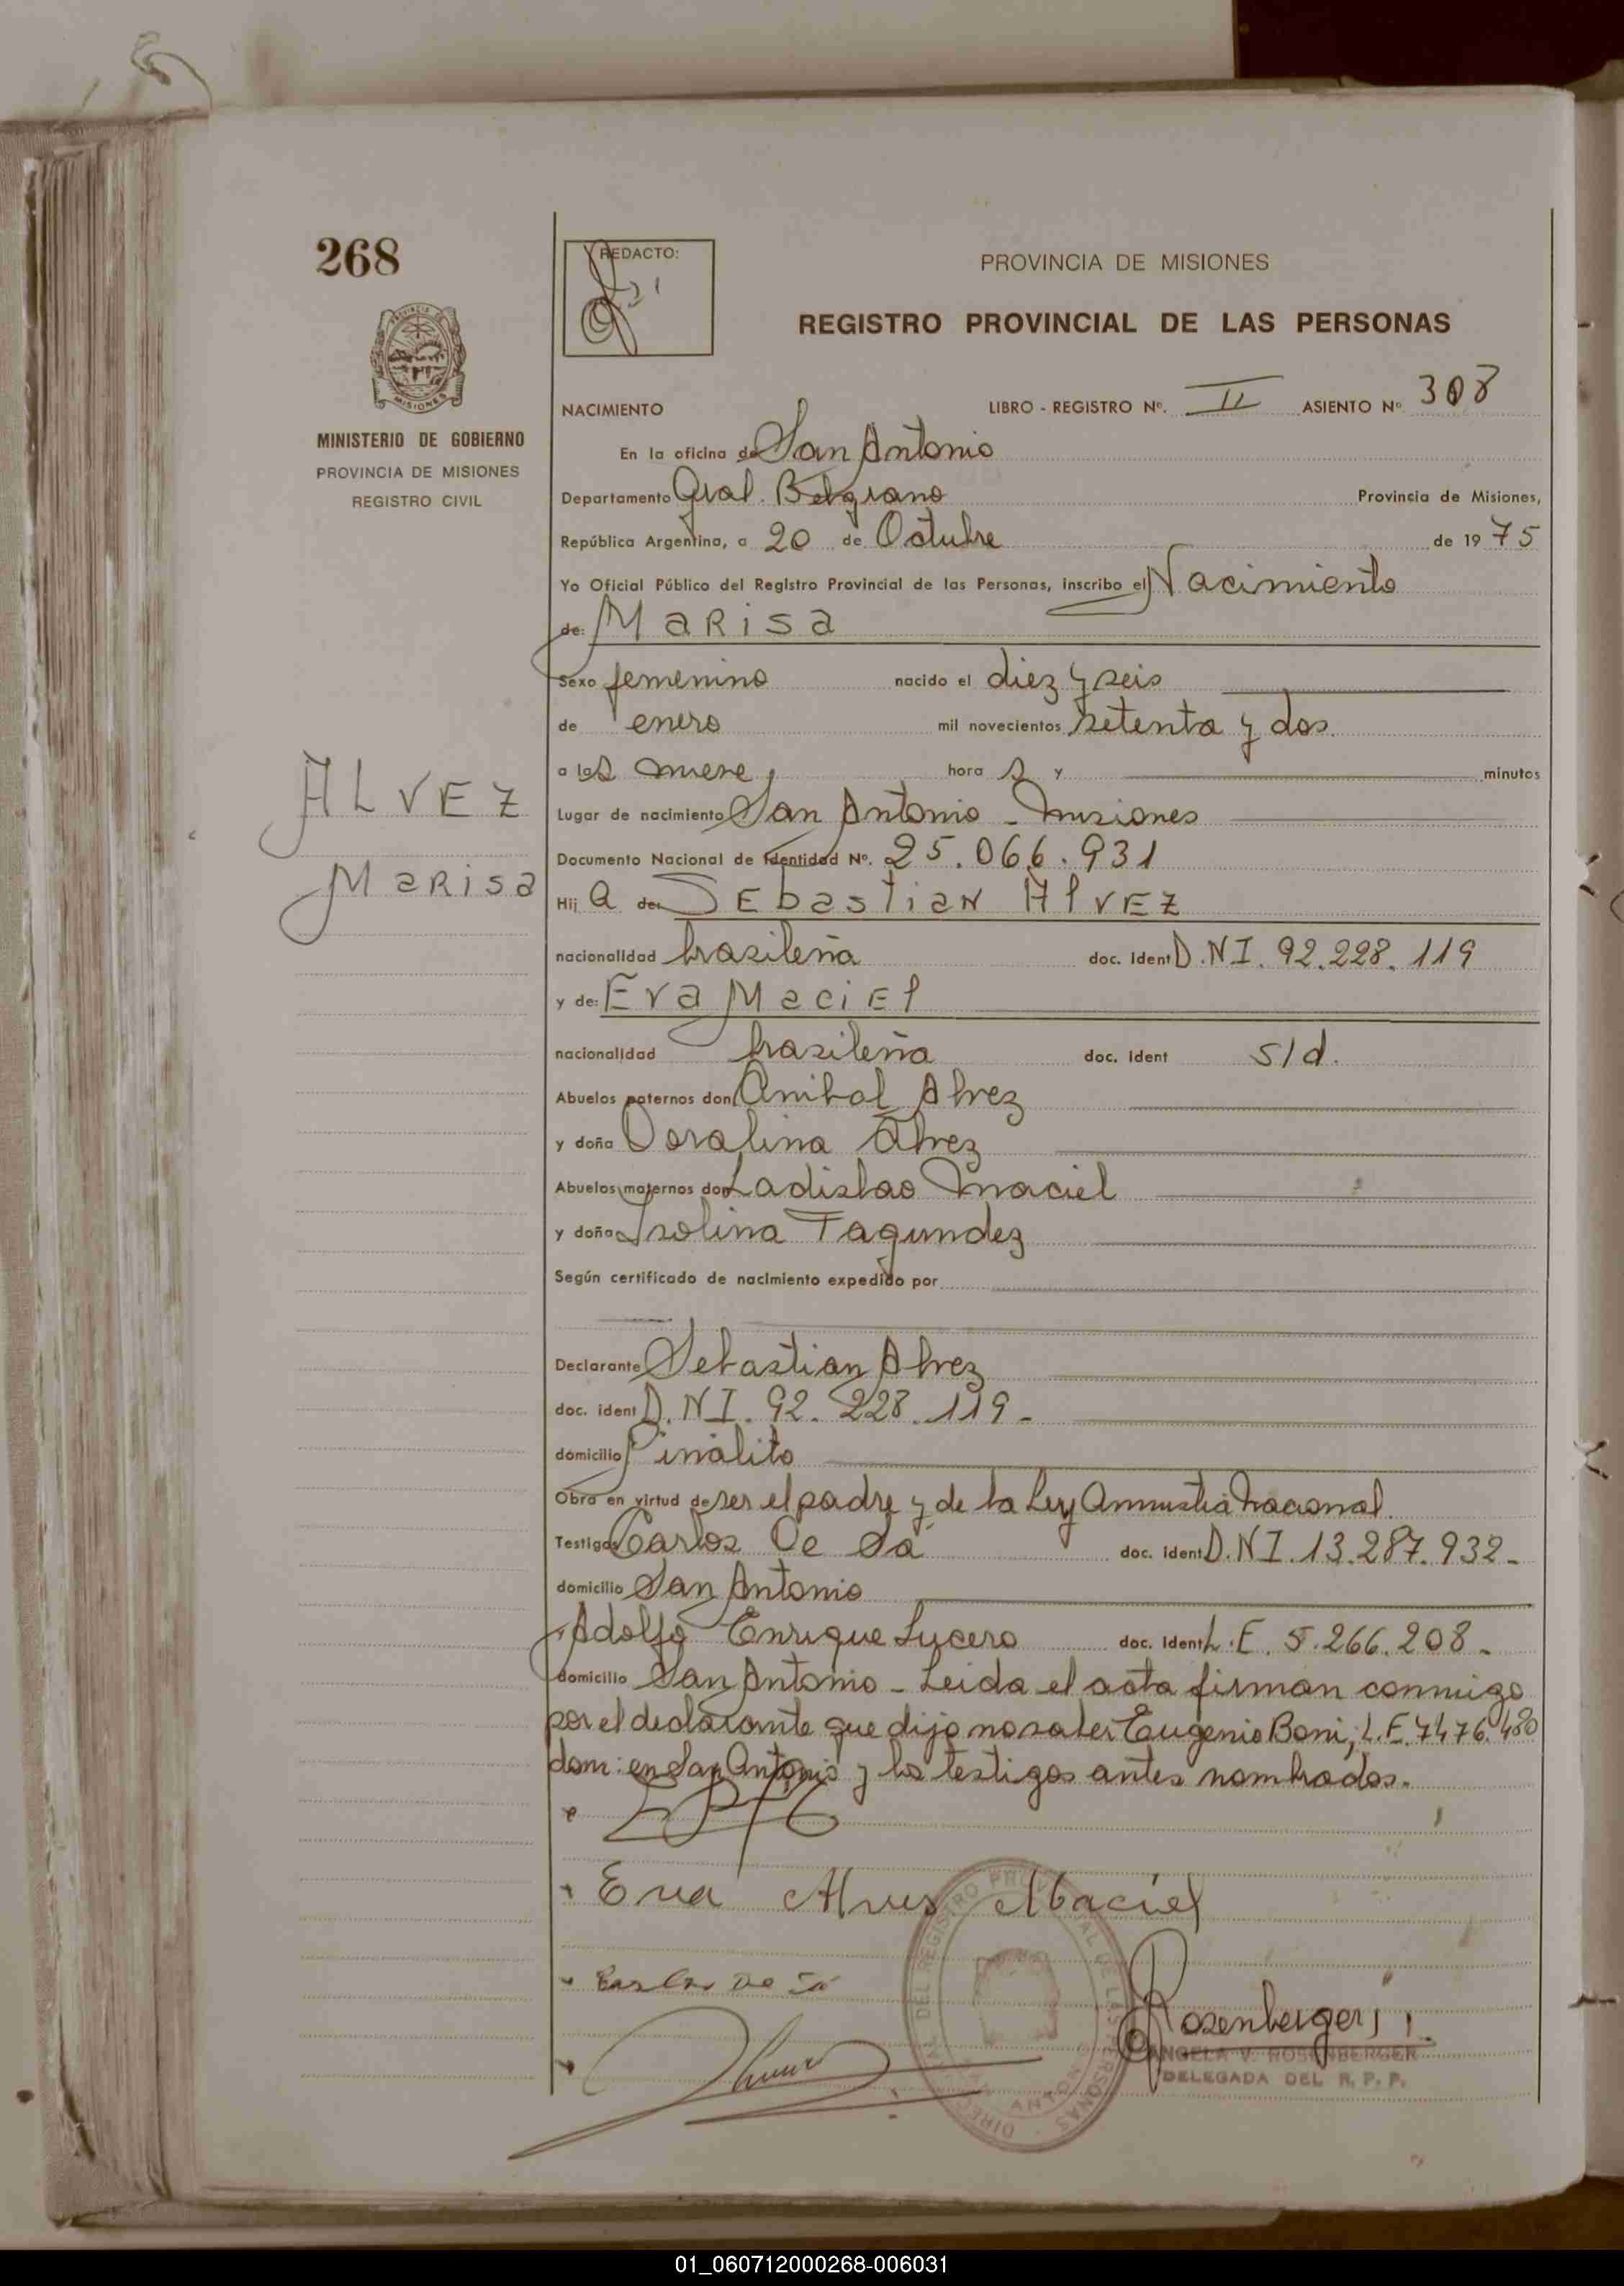 268
REDACTO:
PROVINCIA DE MISIONES
REGISTRO PROVINCIAL DE LAS PERSONAS
MINISTERIO DE GOBIERNO
PROVINCIA DE MISIONES
REGISTRO CIVIL
NACIMIENTO LIBRO - REGISTRO Nº. II ASIENTO Nº 308
En la oficina de San Antonio
Departamento Gral. Belgrano Provincia de Misiones,
República Argentina, a 20 de Octubre de 1975
Yo Oficial Público del Registro Provincial de las Personas, inscribo el Nacimiento
de: Marisa
Sexo femenino nacido el diez y seis
de enero mil novecientos setenta y dos.
a las nueve hora s y minutos
Lugar de nacimiento San Antonio - Misiones
Documento Nacional de Identidad Nº. 25.066.931
ALVEZ
Marisa
Hij a de: Sebastian Alvez
nacionalidad brasileña doc. ident D.N.I. 92.228.119
y de: Eva Maciel
nacionalidad brasileña doc. ident s/d.
Abuelos paternos don Anibal Alvez
y doña Doralina Alvez
Abuelos maternos don Ladislao Maciel
y doña Isolina Fagundez
Según certificado de nacimiento expedido por
Declarante Sebastian Alvez
doc. ident D.N.I. 92.228.119-
domicilio Piñalito
Obra en virtud de ser el padre y de la Ley Amnistia Nacional.
Testigos Carlos De Sá doc. ident D.N.I. 13.287.932-
domicilio San Antonio
Adolfo Enrique Lucero doc. ident L.E. 5.266.208-
domicilio San Antonio - Leida el acta firman conmigo
por el declarante que dijo no saber Eugenio Boni, L.E. 7476.480
dom: en San Antonio y los testigos antes nombrados.
Eva Alves Maciel
Carlos De Sá
Rosenberger
ANGELA V. ROSENBERGER
DELEGADA DEL R.P.P.
01_060712000268-006031